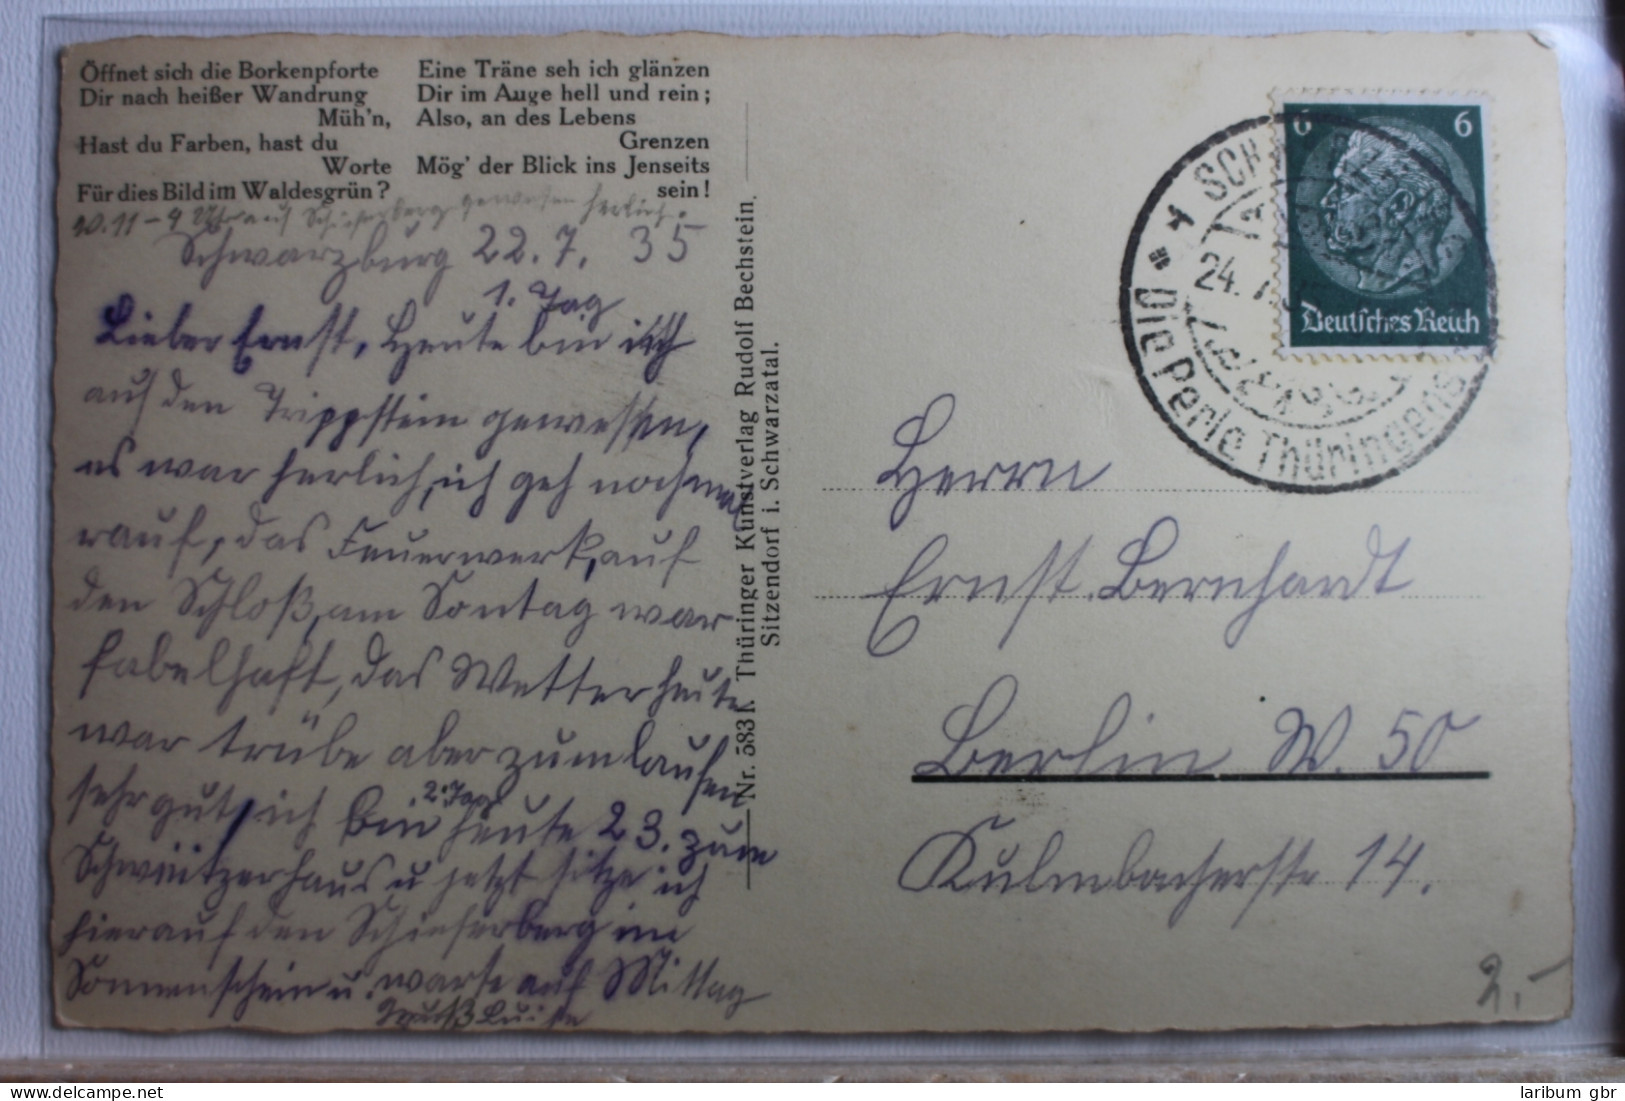 Öffnet sich die Borkenpforte
Dir nach heißer Wandrung
Müh'n,
Hast du Farben, hast du
Worte
Für dies Bild im Waldesgrün?
Eine Träne seh ich glänzen
Dir im Auge hell und rein;
Also, an des Lebens
Grenzen
Mög' der Blick ins Jenseits
sein!
10.11-4 Uhr auf Schieferberg gewesen herlich.
Schwarzburg 22.7. 35
1. Tag
Lieber Ernst, Heute bin ich
auf den Trippstein gewessen,
es war herlich, ich geh nochmal
rauf, das Feuerwerk, auf
den Schloß, am Sontag war
fabelhaft, das Wetter heute
war trübe aber zum laufen
sehr gut, ich bin heute 23. zum
2. Tag
Schweitzerhaus u jetzt sitze ich
hierauf den Schieferberg im
Sonnenschein u. warte auf Mittag
Gruß Luise
Nr. 383 K Thüringer Kunstverlag Rudolf Bechstein.
Sitzendorf i. Schwarzatal.
6 6
Deutsches Reich
24. 7.
Die Perle Thüringens
Herrn
Ernst. Bernhardt
Berlin W. 50
Kulmbacherstr 14.
2.-
laribum gbr